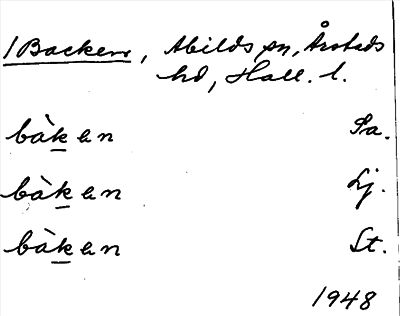 /Backen, Abilds sn, Årstads
hd, Hall. l.
bàken Sa.
bàken Lj.
bàken St.
1948